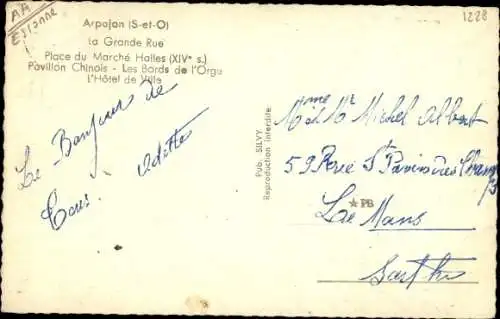 AA
Essonne
1228
Arpajon (S-et-O)
La Grande Rue
Place du Marché Halles (XIVe s.)
Pavillon Chinois - Les Bords de l'Orge
L'Hôtel de Ville
Le Bonjour de
Tous. Odette
Pub. SILVY
Reproduction Interdite
Mme & Mr Michel Albert
59 Rue St Pavin des Champs
★PB
Le Mans
Sarthe